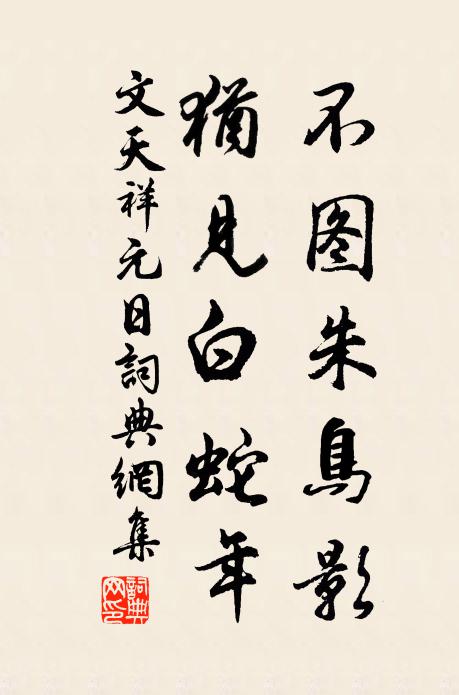 不图朱鳥影
猶見白蛇年
文天祥元日詞典網集
詞典网印